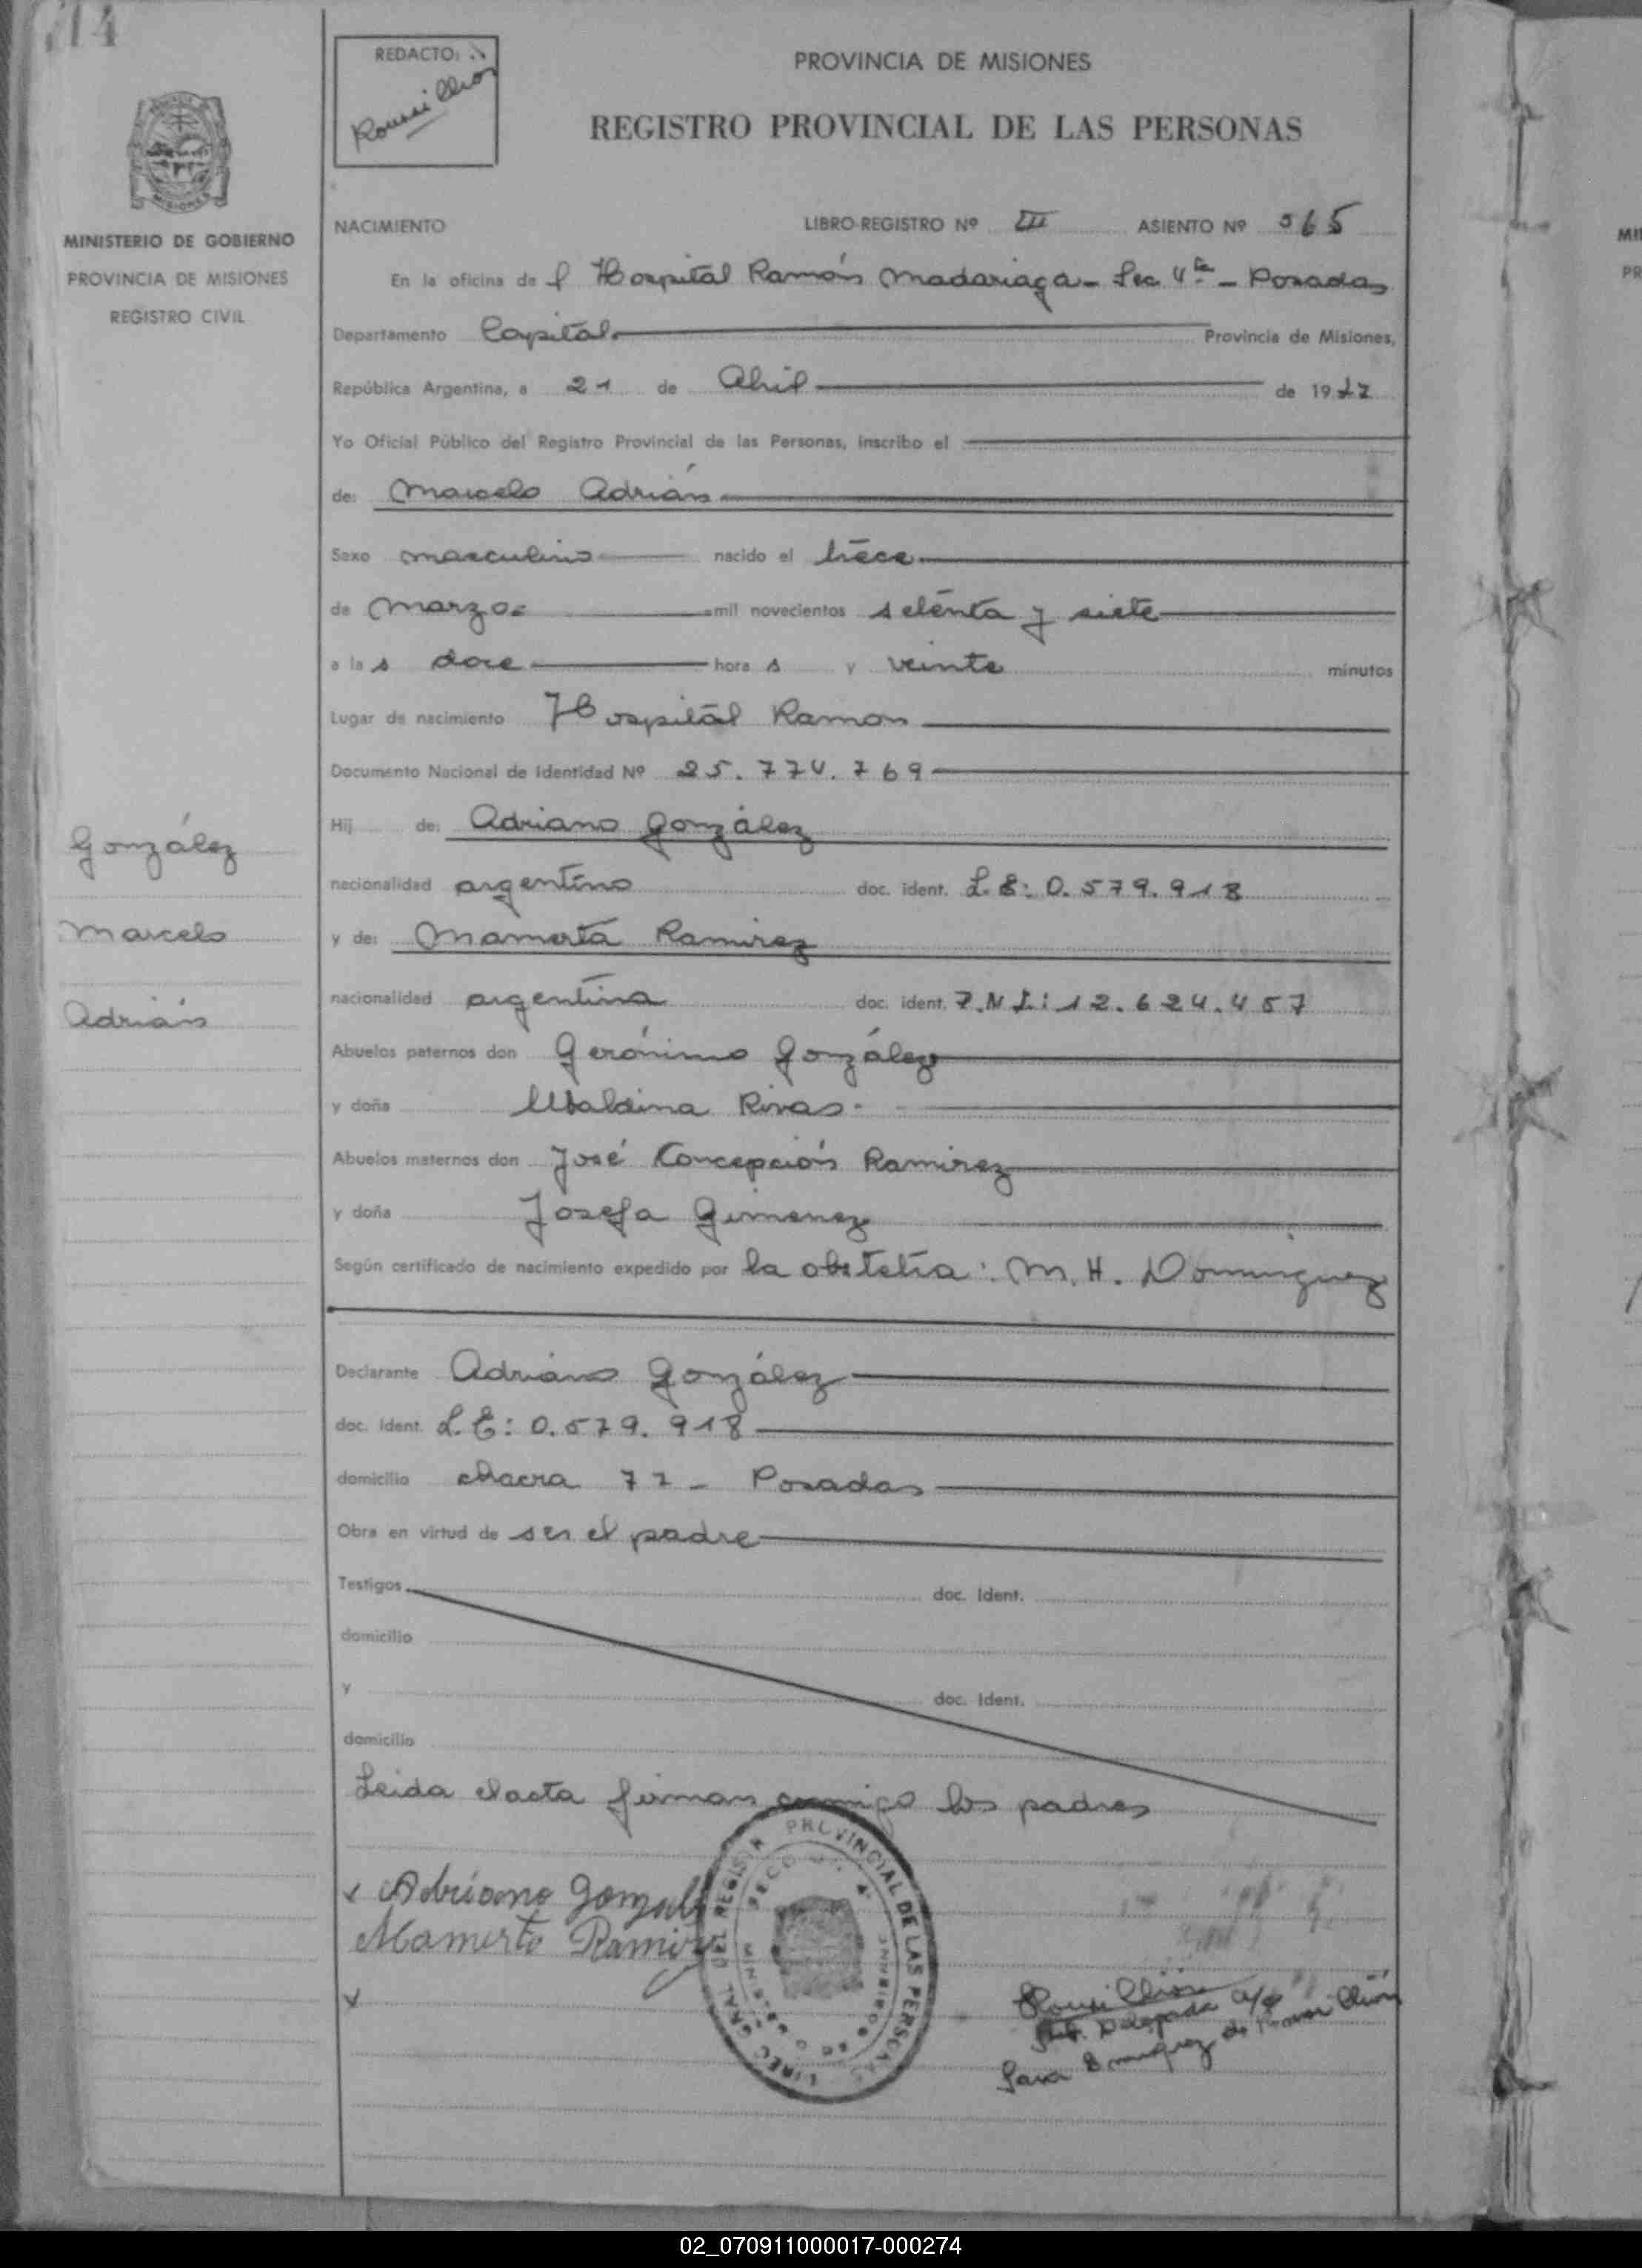 714
REDACTO:
Rouvillion
PROVINCIA DE MISIONES
REGISTRO PROVINCIAL DE LAS PERSONAS
MISIONES
MINISTERIO DE GOBIERNO
PROVINCIA DE MISIONES
REGISTRO CIVIL
NACIMIENTO LIBRO-REGISTRO Nº III ASIENTO Nº 565
En la oficina de l Hospital Ramón Madariaga - Sec 4ta - Posadas
Departamento Capital Provincia de Misiones,
República Argentina, a 21 de Abril de 1977
Yo Oficial Público del Registro Provincial de las Personas, inscribo el
de: Marcelo Adrián
Sexo masculino nacido el trece
de Marzo mil novecientos setenta y siete
a la s doce hora s y veinte minutos
Lugar de nacimiento Hospital Ramon
Documento Nacional de Identidad Nº 25.774.769
Hij de: Adriano González
nacionalidad argentino doc. ident. L.E: 0.579.918
y de: Mamerta Ramirez
nacionalidad argentina doc. ident. D.N.I: 12.624.457
Abuelos paternos don Gerónimo González
y doña Ubaldina Rivas
Abuelos maternos don José Concepción Ramirez
y doña Josefa Gimenez
Según certificado de nacimiento expedido por la obstetra: M. H. Dominguez
González
Marcelo
Adrián
Declarante Adriano González
doc. Ident. L.E: 0.579.918
domicilio chacra 77 - Posadas
Obra en virtud de ser el padre
Testigos doc. Ident.
domicilio
y doc. Ident.
domicilio
Leida el acta firman conmigo los padres
Adriano Gonzalez
Mamerta Ramirez
DEL REGISTR PROVINCIAL DE LAS PERSONAS
DIREC GRAL
Delegada
02_070911000017-000274